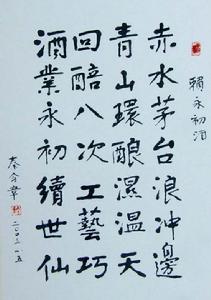 赖永初酒
赤水茅台浪冲邊
青山環酿濕温天
回醅八次工藝巧
酒業永初續世仙
秦含章
二〇〇三·一·五